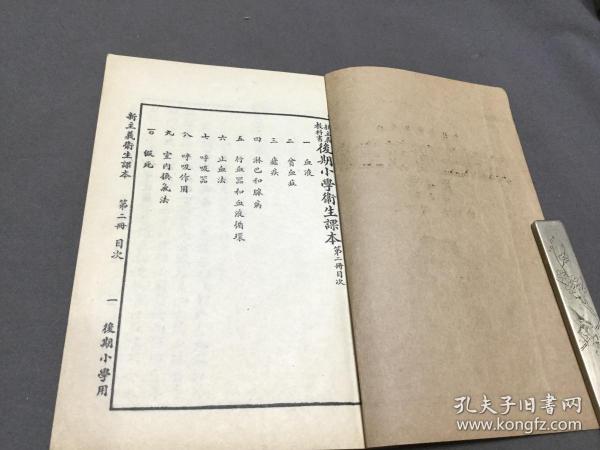 新主義教科書 後期小學衛生課本 第二冊目次
一 血液
二 貧血症
三 瘧疾
四 淋巴和腺病
五 行血器和血液循環
六 止血法
七 呼吸器
八 呼吸作用
九 室內換氣法
一〇 假死
新主義衛生課本 第二冊 目次 一 後期小學用
孔夫子旧书网
www.kongfz.com